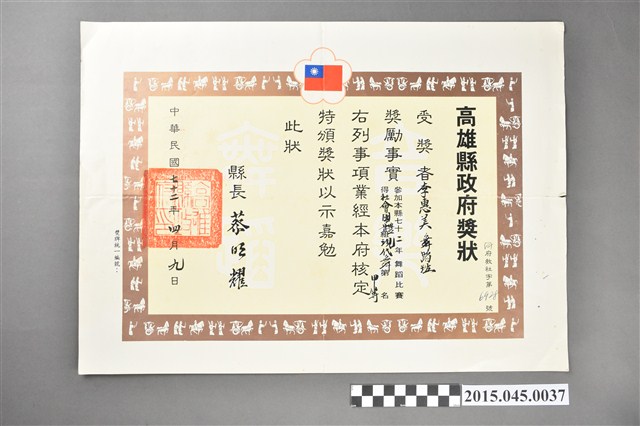 高雄縣政府獎狀
府教社字第6928號
受獎者李惠美舞蹈班
獎勵事實 參加本縣七十二年舞蹈比賽
得社會團體現代舞第 名
甲等
右列事項業經本府核定
特頒獎狀以示嘉勉
此狀
縣長 蔡明耀
中華民國七十二年四月九日
2015.045.0037